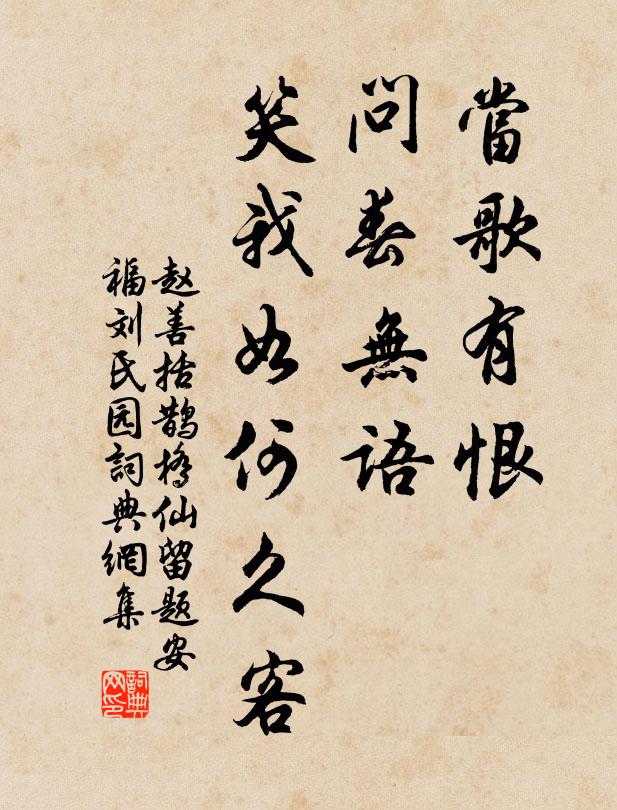 當歌有恨
問春無語
笑我如何久客
赵善括鹊橋仙留题安
福刘氏园詞典網集
詞典
网印